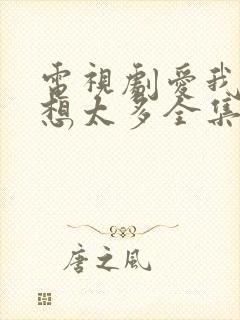 電視劇愛我
想太多全集
唐之风